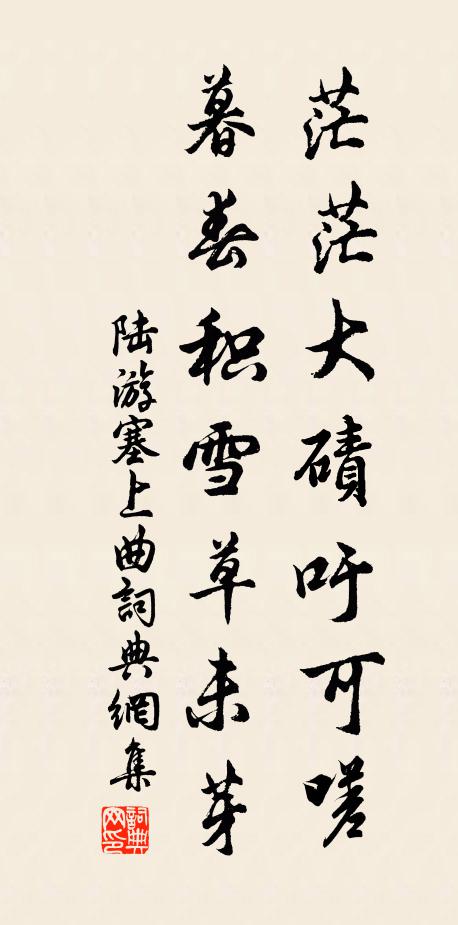 茫茫大磧吁可嗟
暮春积雪草未芽
陆游塞上曲詞典網集
詞典网印